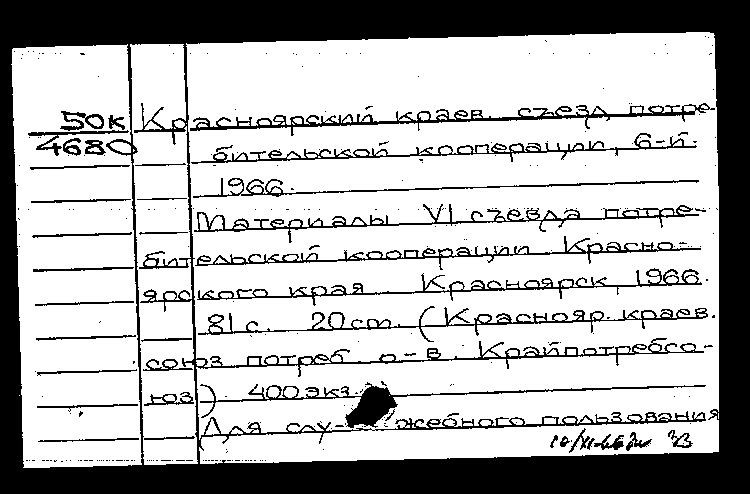 50к Красноярский краев. съезд потре-
4680 бительской кооперации, 6-й.
1966.
Материалы VI съезда потре-
бительской кооперации Красно-
ярского края. Красноярск, 1966.
81 с. 20 cm. (Краснояр. краев.
союз потреб. о-в. Крайпотребсо-
юз) 400 экз.
(Для слу- жебного пользования